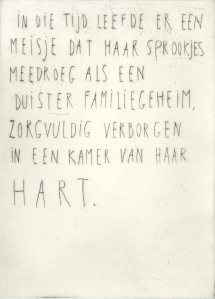 IN DIE TIJD LEEFDE ER EEN
MEISJE DAT HAAR SPROOKJES
MEEDROEG ALS EEN
DUISTER FAMILIEGEHEIM,
ZORGVULDIG VERBORGEN
IN EEN KAMER VAN HAAR
HART.